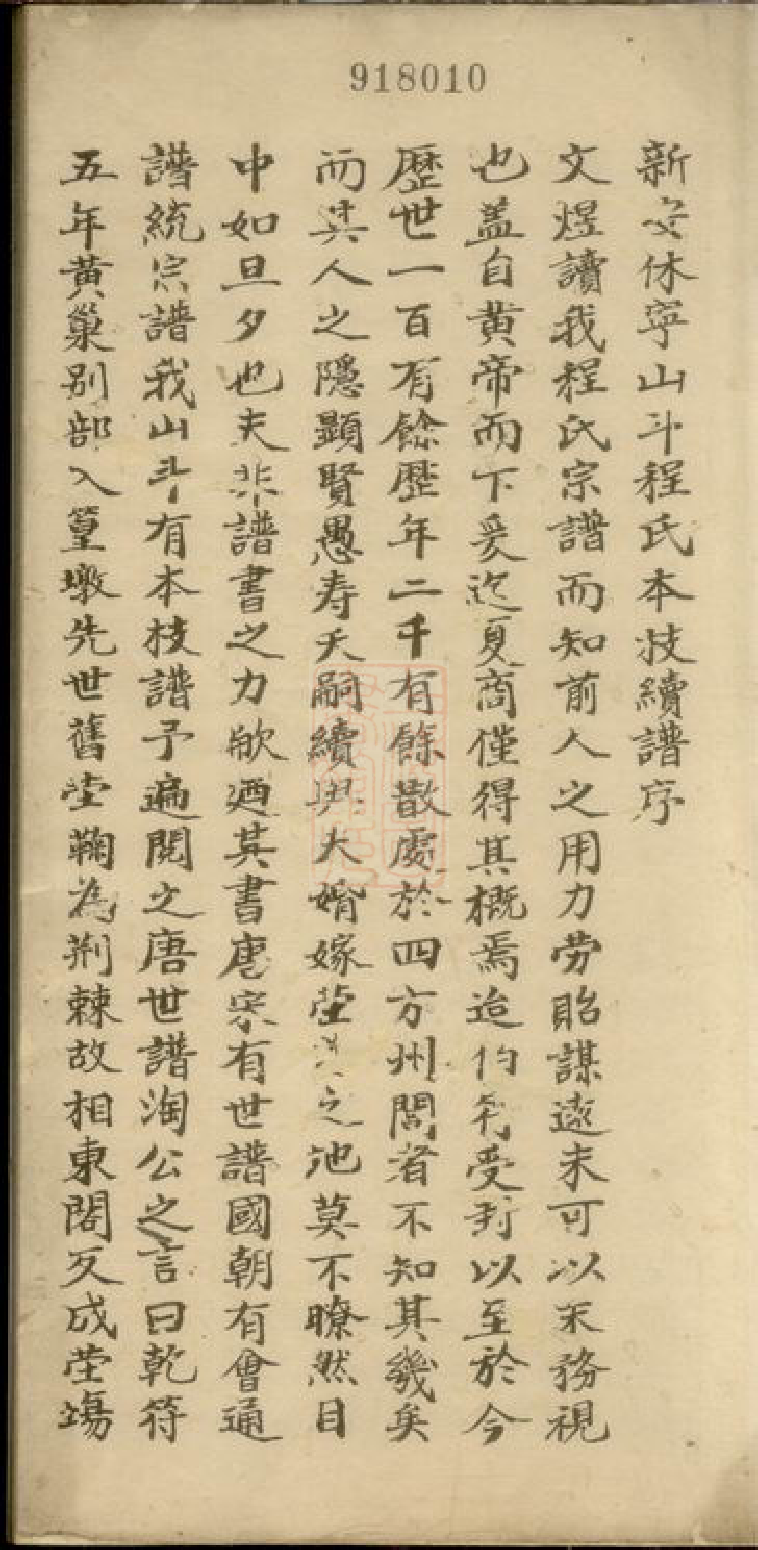 918010
新安休寧山斗程氏本技續譜序
文煜讀我程氏宗譜而知前人之用力劳貽謀遠未可以末務視
也盖自黄帝而下爰迄夏商僅得其概焉迨伯符受封以至於今
歷世一百有餘歷年二千有餘散處於四方州閭者不知其幾矣
而其人之隱顯賢愚寿夭嗣續與夫婚嫁茔之池莫不瞭然目
中如旦夕也夫非譜書之力歟廼其書唐宋有世譜國朝有會通
譜統宗譜我山斗有本枝譜予遍閱之唐世譜淘公之言曰乾符
五年黄巢别部入篁墩先世舊茔鞠為荆棘故相東閣又成茔塲